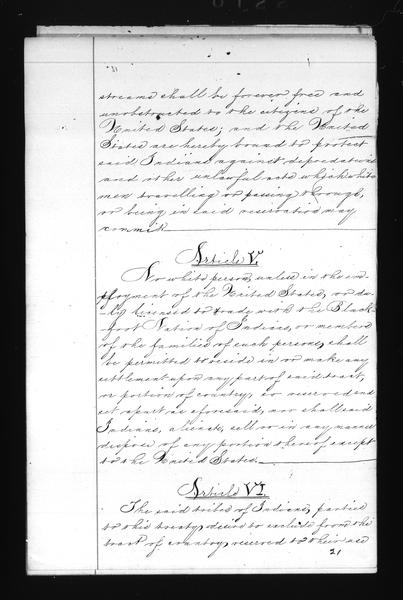 streams shall be forever free and
unobstructed to the citizens of the
United States; and the United
States are hereby bound to protect
said Indians against depredations
and other unlawful acts which white
men travelling or passing through,
or being in said reservation may
commit
Article V.
No white person, unless in the em-
ployment of the United States, or du-
ly licensed to trade with the Black-
foot Nation of Indians, or members
of the families of such persons, shall
be permitted to reside in or make any
settlement upon any part of said tract,
or portion of country, so reserved and
set apart as aforesaid, nor shall said
Indians, alienate, sell or in any manner
dispose of any portion thereof except
to the United States.
Article VI.
The said tribes of Indians, parties
to this treaty, desire to exclude from the
tract of country, reserved to their use
21